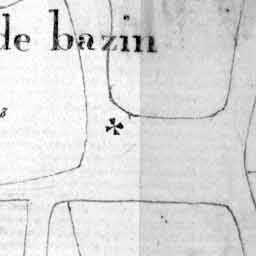 de bazin